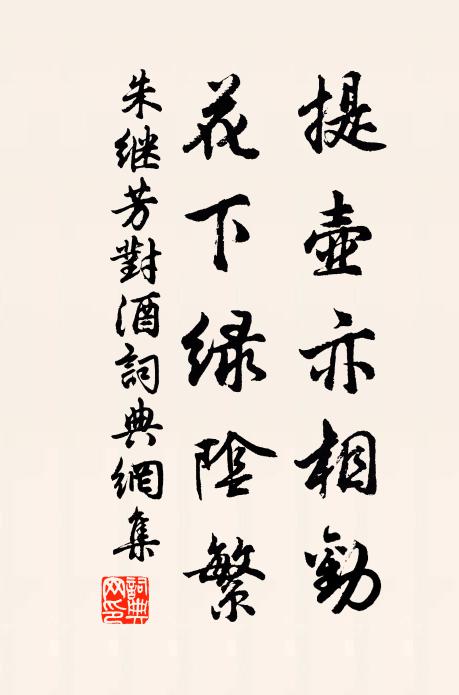 提壺亦相勸
花下緑陰繁
朱继芳對酒詞典網集
詞典网印